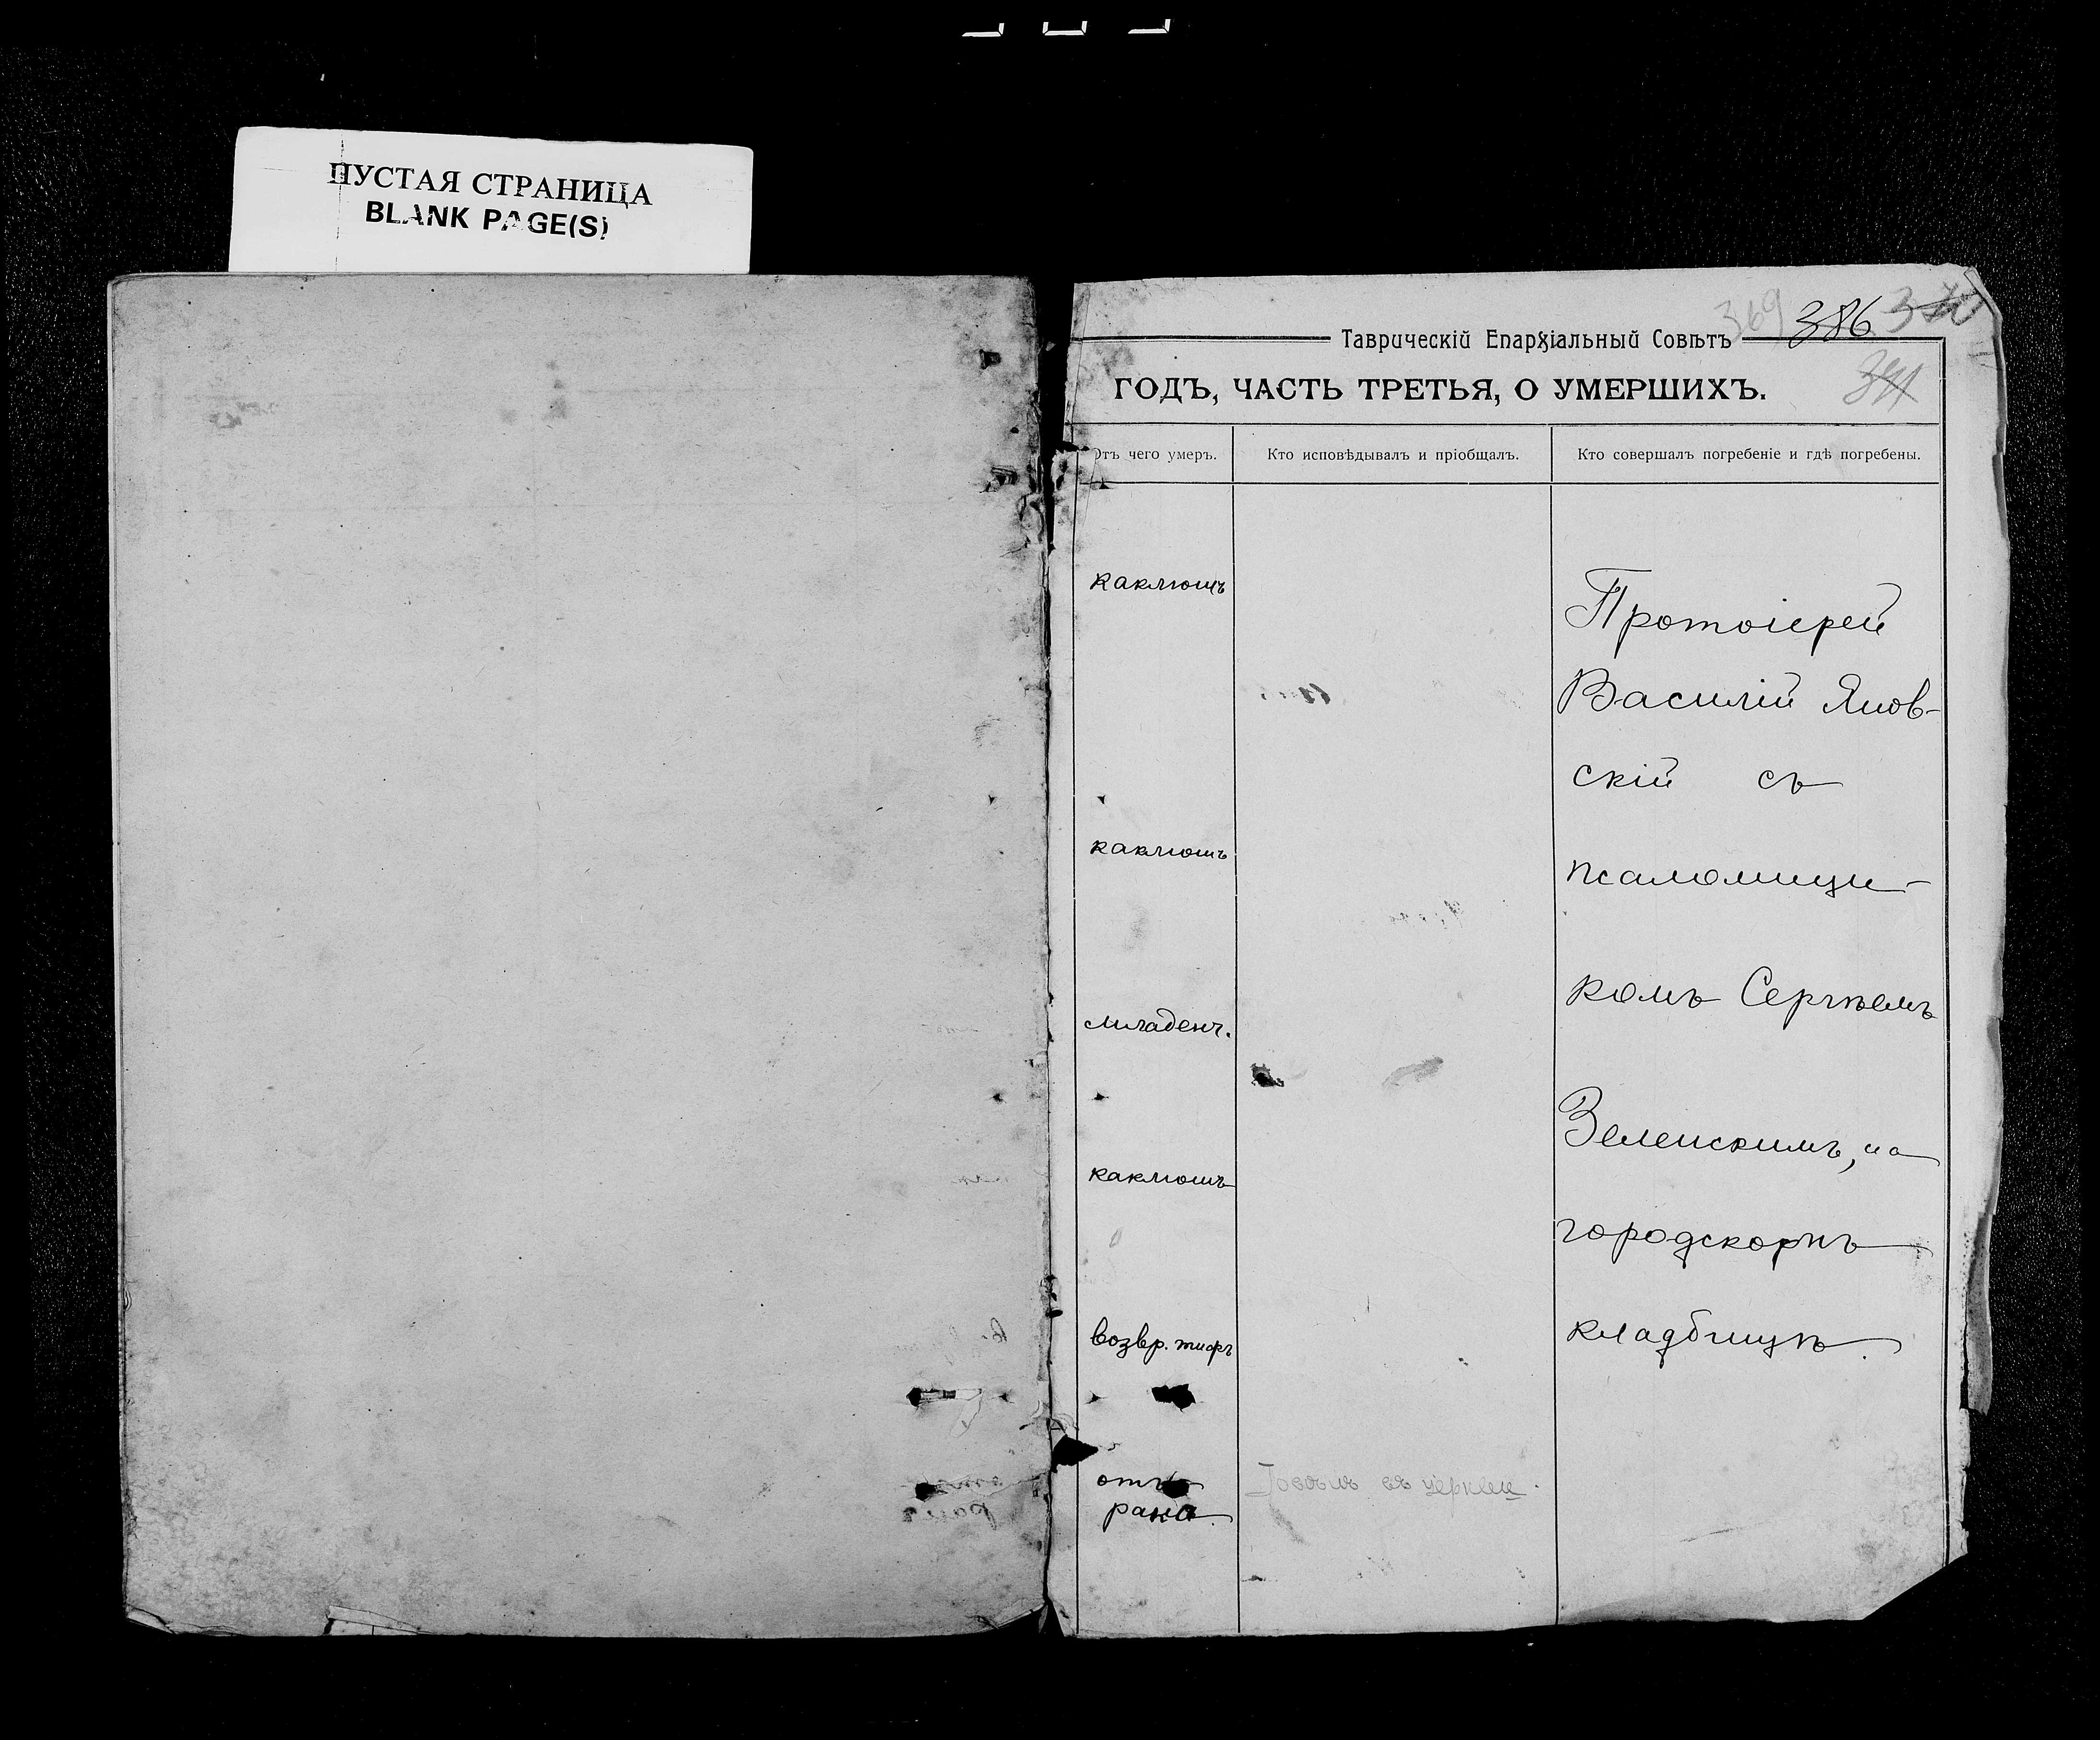 ПУСТАЯ СТРАНИЦА
BLANK PAGE(S)
369 386
Таврическій Епархіальный Совѣтъ
ГОДЪ, ЧАСТЬ ТРЕТЬЯ, О УМЕРШИХЪ.
Отъ чего умеръ.
Кто исповѣдывалъ и пріобщалъ.
Кто совершалъ погребеніе и гдѣ погребены.
каклюшъ
Протоіерей
Василій Янов-
скій съ
каклюшъ
псаломщи-
комъ Сергѣемъ
младенч.
Зеленскимъ, на
каклюшъ
городскомъ
возвр. тифъ
кладбищѣ.
отъ
рака.
въ церкви